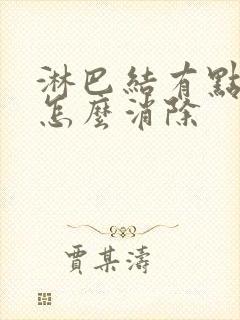 淋巴結有點
怎麼消除
賈某濤